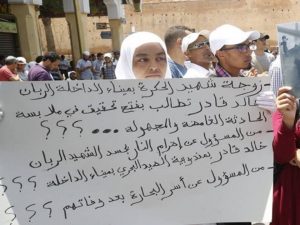 زوجة شهيد الحكرة بميناء الداخلة الربان
خالد قادر تطالب بفتح تحقيق في ملابسة
الحادثة الغامضة والمجهولة ... ؟ ؟ ؟
من المسؤول عن إضرام النار لجسد الشهيد الربان
خالد قادر بمندوبية الصيد البحري بميناء الداخلة ؟ ؟ ؟
من المسؤول عن أسر البحارة بعد وفاتهم ؟ ؟ ؟